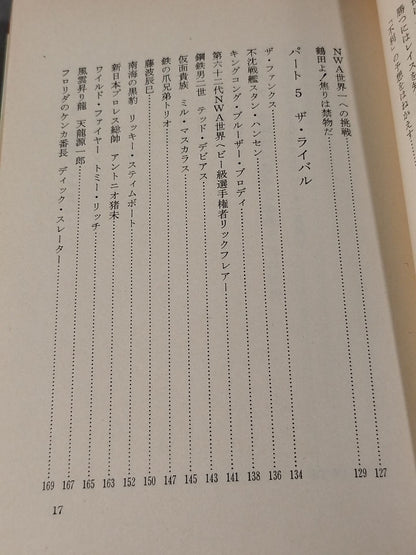 勝つにはレイス
「不利」の予想をはねかえ
NWA世界一への挑戦 127
鶴田よ！焦りは禁物だ 129
パート5 ザ・ライバル 134
ザ・ファンクス 136
不沈戦艦スタン・ハンセン 138
キングコング・ブルーザー・ブロディ 141
第六十二代NWA世界ヘビー級選手権者リックフレアー 143
鋼鉄男二世 テッド・デビアス 145
仮面貴族 ミル・マスカラス 147
鉄の爪兄弟トリオ 147
藤波辰巳 150
南海の黒豹 リッキー・スティムボート 152
新日本プロレス総帥 アントニオ猪木 163
ワイルド・ファイヤー トミー・リッチ 165
風雲昇り龍 天龍源一郎 167
フロリダのケンカ番長 ディック・スレーター 169
17